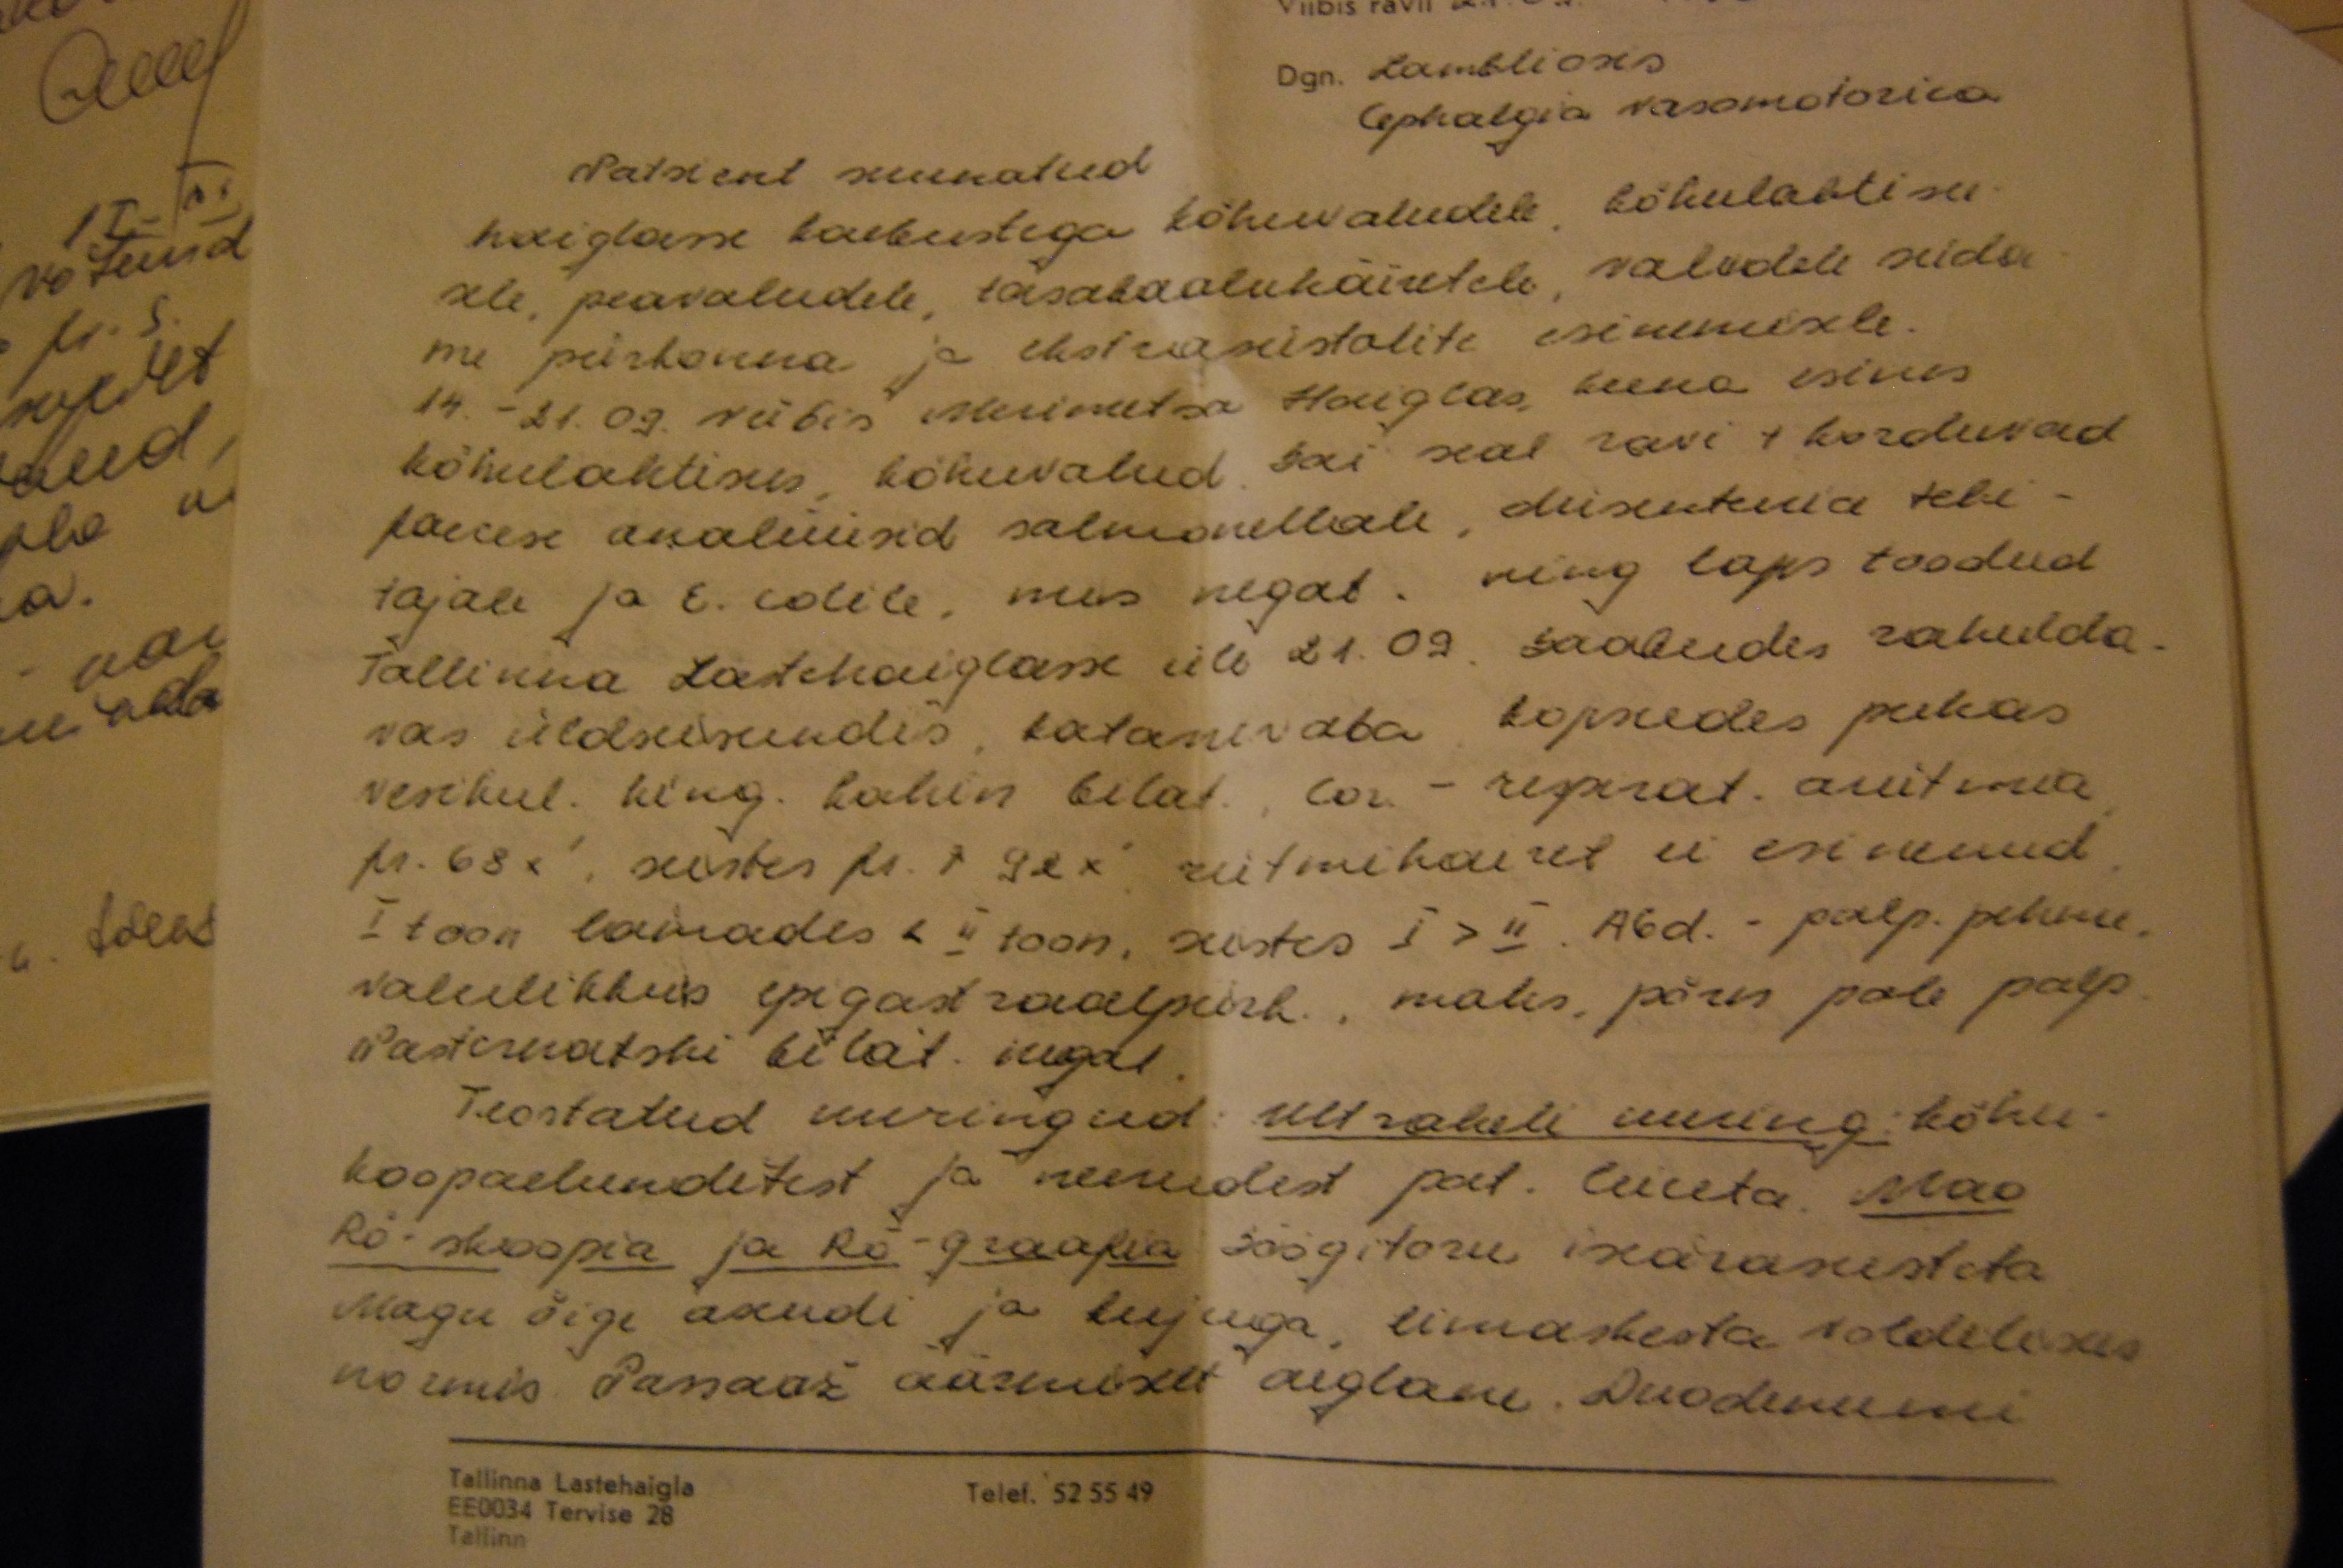 Viibis ravil
Dgn. Lamblioosis
Cephalgia vasomotorica
Patsient suunatud
haiglasse kaebustega kõhuvaludele, kõhulahtisu-
sele, peavaludele, tasakaaluhäiretele, valudele süda-
me piirkonna ja ekstrasüstolite esinemisele.
14. - 21. 09. viibis Merimetsa Haiglas, kuna esines
kõhulahtisus, kõhuvalud. Sai seal ravi + korduvad
faecese analüüsid salmonellale, düsenteeria teki-
tajale ja E. colile, mis negat. ning laps toodud
Tallinna Lastehaiglasse üle 21. 09. Saabudes rahulda-
vas üldseisundis, katarrivaba, kopsudes puhas
vesikul. hing. kahin bilat., Cor. - respirat. arütmia,
fr. 68 x', seistes fr. ↑ 92 x', rütmihäiret ei esinenud.
I toon lamades < II toon, seistes I > II. Abd. - palp. pehme,
valulikkus epigastraalpiirk., maks, põrn pole palp.
Pasternatski bilat. negat.
Teostatud uuringud: Ultraheli uuring: kõhu-
koopaelunditest ja neerudest pat. leiuta. Mao
Rö-skoopia ja Rö-graafia söögitoru iseärasusteta
Magu õige asendi ja kujuga, limaskesta voldilisus
normis. Passaaž äärmiselt aeglane. Duodenumi
Tallinna Lastehaigla
EE0034 Tervise 28
Tallinn
Telef. 52 55 49
võtnud
fr. S.